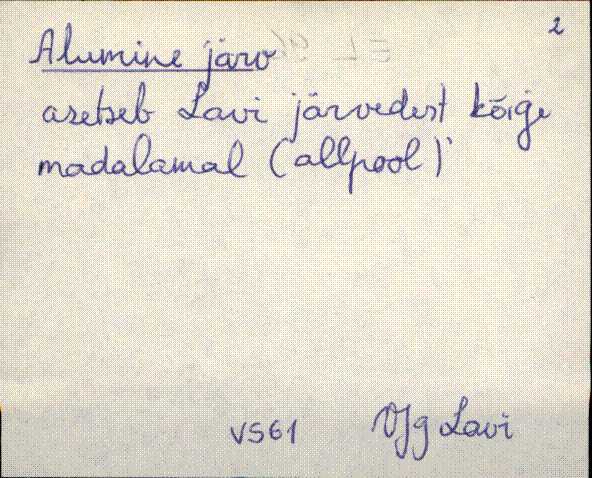 2
Alumine järv
asetseb Lavi järvedest kõige
madalamal (allpool)
VS61 VJg Lavi